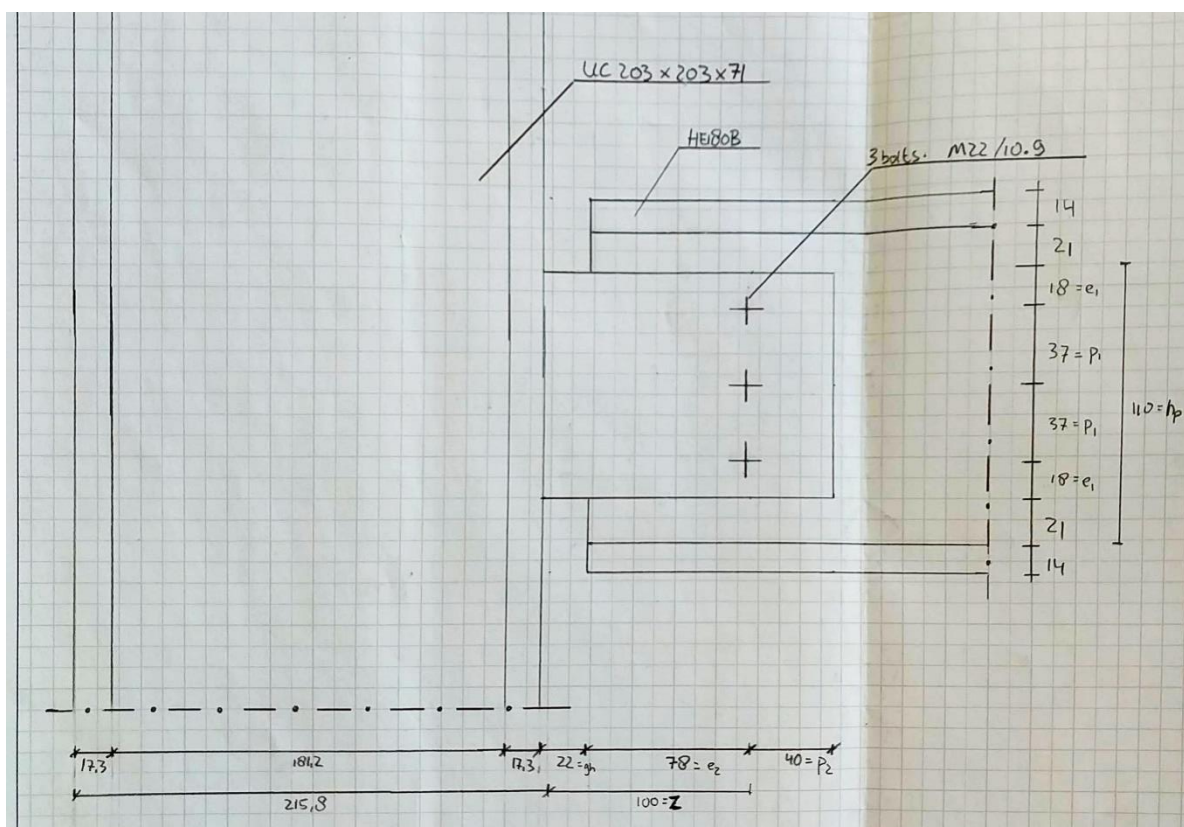 UC 203 x 203 x 71
HE180B
3 bolts. M22/10.9
14
21
18 = e1
37 = P1
37 = P1
18 = e1
21
14
110 = hp
17,3
181,2
17,3
22 = gh
78 = e2
40 = P2
215,8
100 = Z